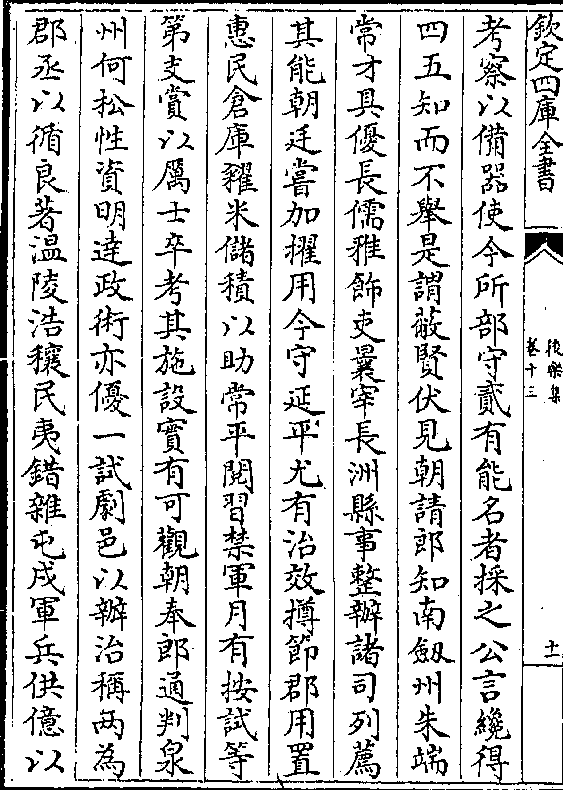 欽定四庫全書
後樂集
卷十三
十一
考察以備器使今所部守貳有能名者採之公言纔得
四五知而不舉是謂蔽賢伏見朝請郎知南劔州朱端
常才具優長儒雅飾吏曩宰長洲縣事整辦諸司列薦
其能朝廷嘗加擢用今守延平尤有治效撙節郡用置
惠民倉庫糴米儲積以助常平閲習禁軍月有按試等
第支賞以厲士卒考其施設實有可觀朝奉郎通判泉
州何松性資明達政術亦優一試劇邑以辦治稱兩為
郡丞以循良著温陵浩穰民夷錯雜屯戍軍兵供億以